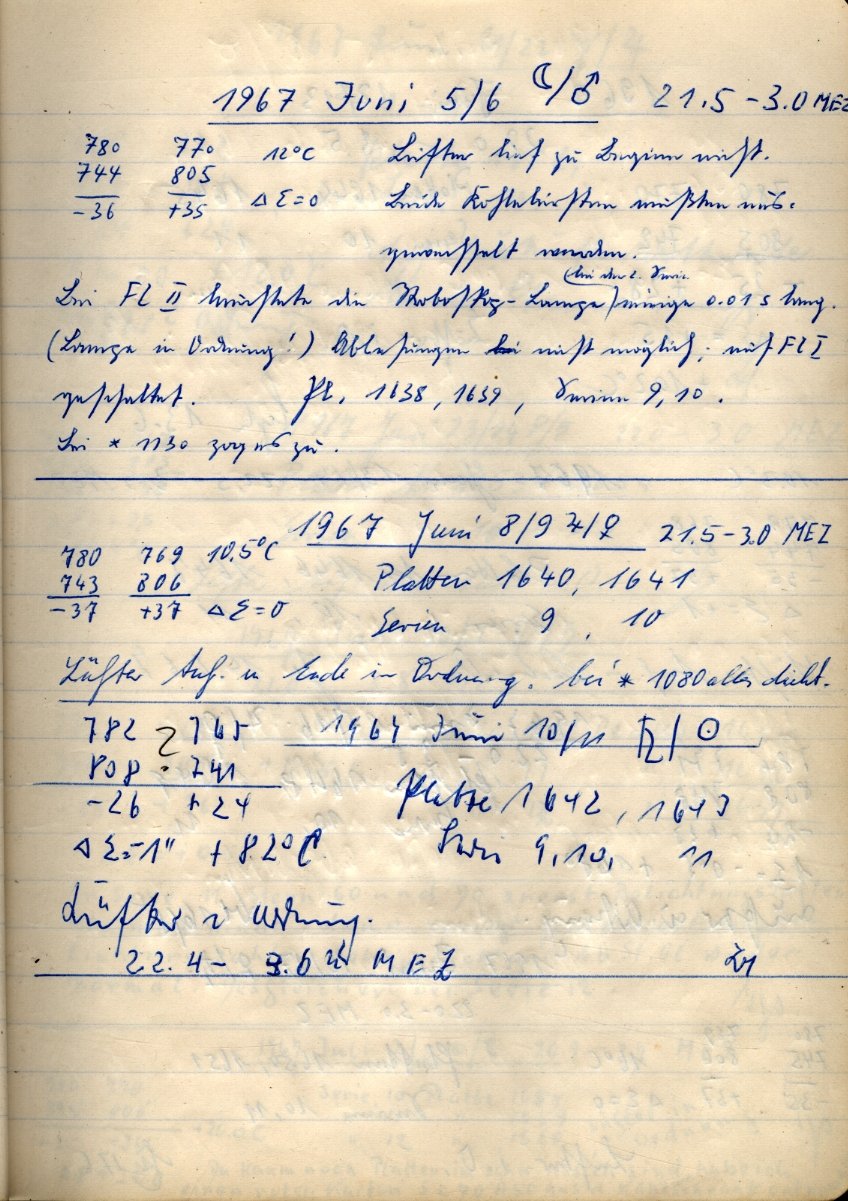 1967 Juni 5/6 ☾/♂ 21.5 – 3.0 MEZ
780 770 12°C Lüfter lief zu Beginn nicht.
744 805
-36 +35 ΔΣ=0 Beide Kohlebürsten mußten aus-
gewechselt werden.
(bei der 2. Serie)
Bei FL II leuchtete die Stroboskop-Lampe einige 0.01 s lang.
(Lampe in Ordnung!) Ablesungen nicht möglich; auf FL I
geschaltet. Pl. 1638, 1639, Serien 9, 10.
Bei * 1130 zog es zu.
1967 Juni 8/9 ♃/♀ 21.5 – 3.0 MEZ
780 769 10.5°C
743 806 Platten 1640, 1641
-37 +37 ΔΣ=0 Serien 9, 10
Lüfter Anf. u Ende in Ordnung. bei * 1080 alles dicht.
782 ? 765 1967 Juni 10/11 ♄/☉
808 741
-26 +24 Platte 1642, 1643
ΔΣ=-1" +8.2°C Serie 9, 10, 11
Lüfter in Ordnung.
22.4 – 3.6 MEZ